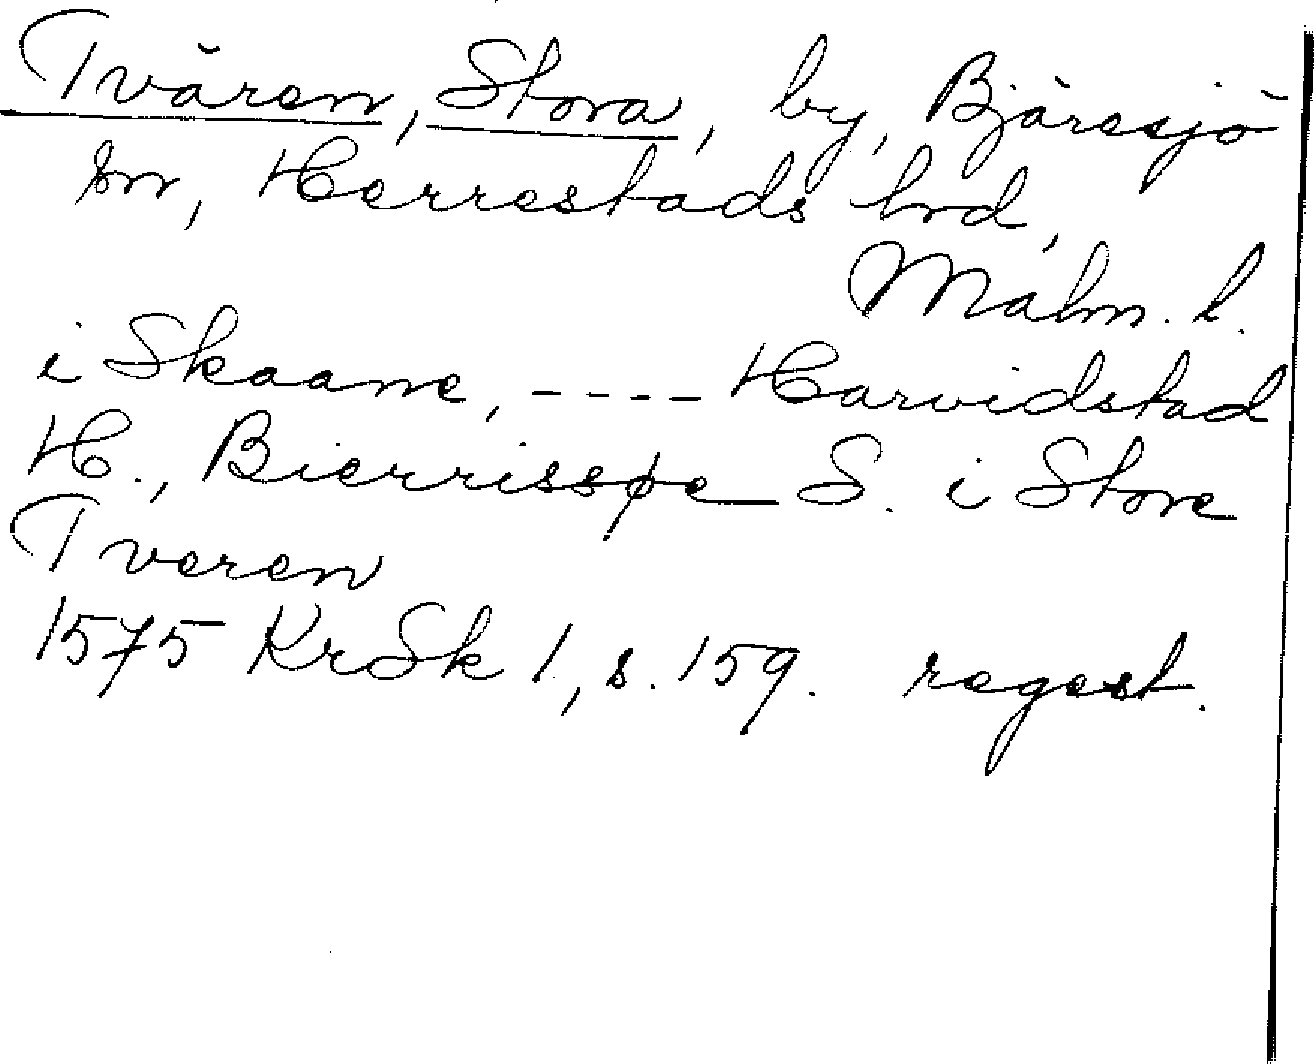 Tvären, Stora, by, Bjäresjö
sn, Herrestads hrd,
Malm. l.
i Skaane, ---- Harvidstad
H., Bierrissøe S. i Store
Tveren
1575 KrSk 1, s. 159. regest.